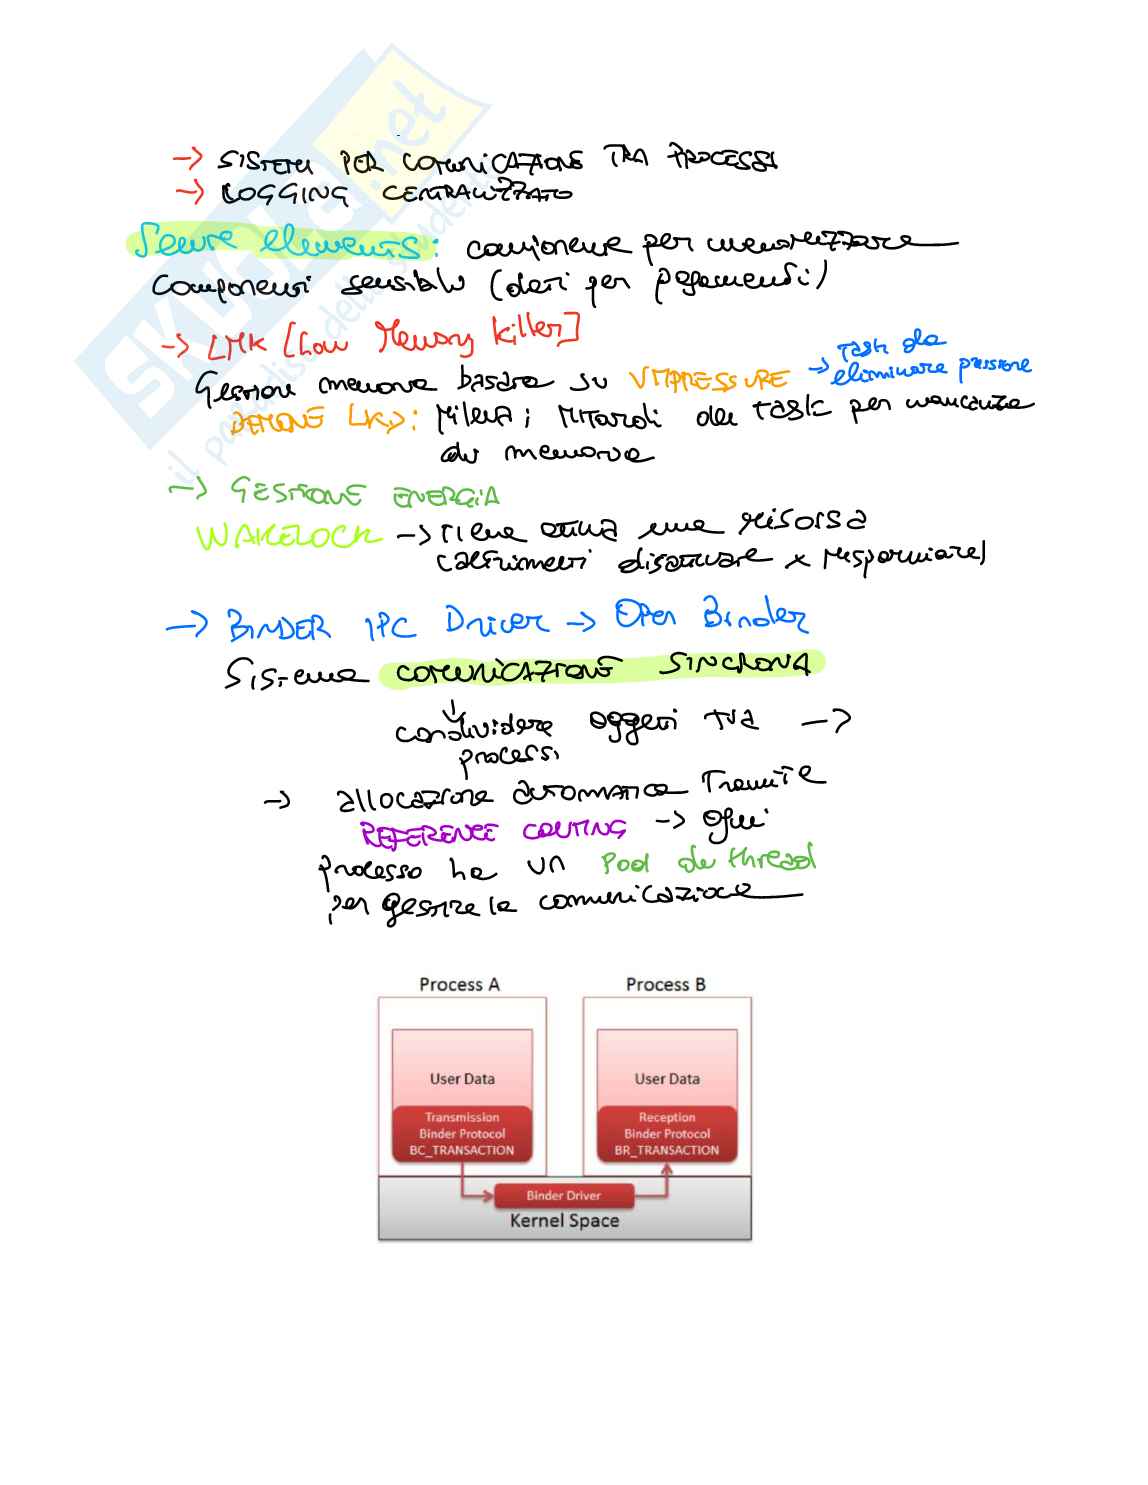 → SISTEMI PER COMUNICAZIONE TRA PROCESSI
→ LOGGING CENTRALIZZATO
Secure elements: componente per memorizzare
componenti sensibili (dati per pagamenti)
→ LMK [Low Memory Killer]
Gestione memoria basata su VMPRESSURE → Task da
eliminare pressione
DEMONE LKD: rileva i ritardi dei task per mancanza
di memoria
→ GESTIONE ENERGIA
WAKELOCK → tiene attiva una risorsa
(altrimenti disattivare x risparmiare)
→ BINDER IPC Driver → Open Binder
Sistema COMUNICAZIONE SINCRONA
condividere oggetti tra →
processi
→ allocazione automatica tramite
REFERENCE COUTING → Ogni
processo ha un Pool di thread
per gestire la comunicazione
Process A Process B
User Data User Data
Transmission Reception
Binder Protocol Binder Protocol
BC_TRANSACTION BR_TRANSACTION
Binder Driver
Kernel Space
SKUOLA.net